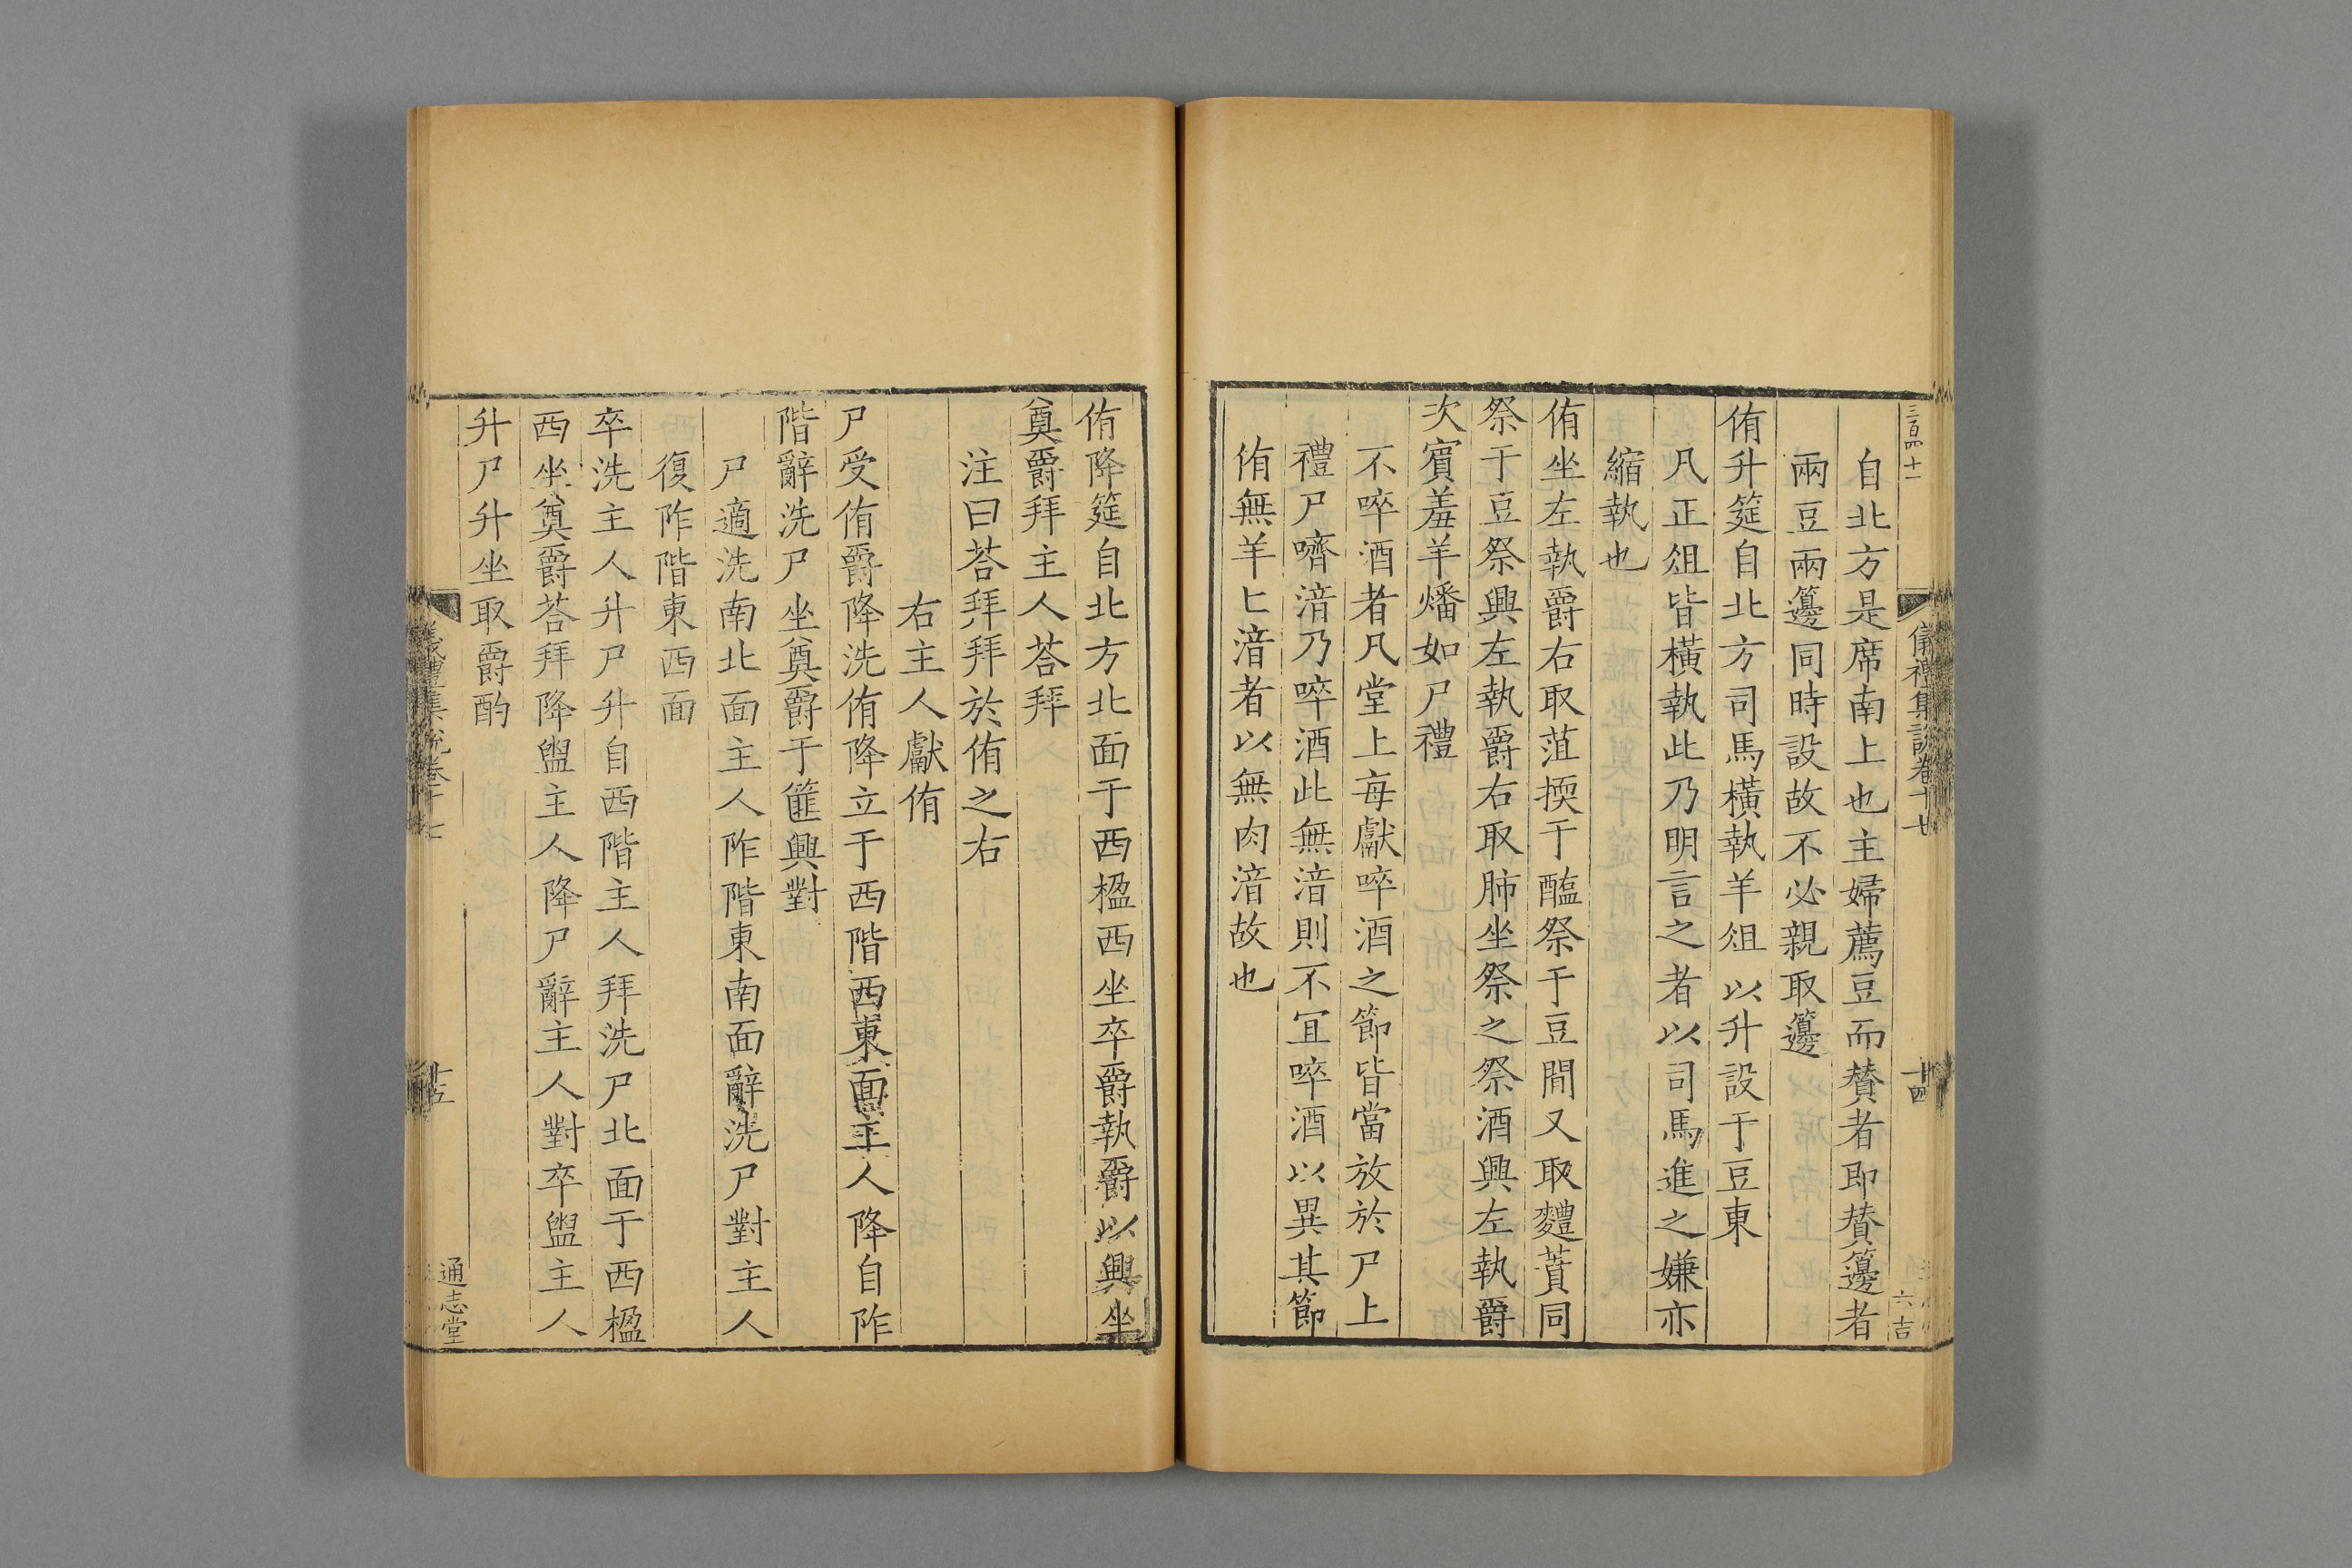 三百四十一
儀禮集說卷十七
十四
六吉
自北方是席南上也主婦薦豆而贊者即贊籩者
兩豆兩籩同時設故不必親取籩
侑升筵自北方司馬橫執羊俎以升設于豆東
凡正俎皆橫執此乃明言之者以司馬進之嫌亦
縮執也
侑坐左執爵右取菹擩于醢祭于豆間又取麷蕡同
祭于豆祭興左執爵右取肺坐祭之祭酒興左執爵
次賓羞羊燔如尸禮
不啐酒者凡堂上每獻啐酒之節皆當放於尸上
禮尸嚌湆乃啐酒此無湆則不宜啐酒以異其節
侑無羊匕湆者以無肉湆故也
侑降筵自北方北面于西楹西坐卒爵執爵以興坐
奠爵拜主人荅拜
注曰荅拜拜於侑之右
右主人獻侑
尸受侑爵降洗侑降立于西階西東面主人降自阼
階辭洗尸坐奠爵于篚興對
尸適洗南北面主人阼階東南面辭洗尸對主人
復阼階東西面
卒洗主人升尸升自西階主人拜洗尸北面于西楹
西坐奠爵荅拜降盥主人降尸辭主人對卒盥主人
升尸升坐取爵酌
儀禮集說卷十七
十五
通志堂